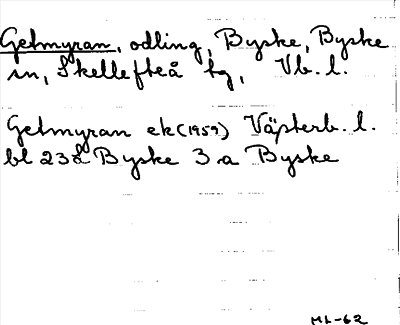 Getmyran, odling, Byske, Byske
sn, Skellefteå tg, Vb. l.
Getmyran ek (1959) Västerb. l.
bl 23L Byske 3 a Byske
ML-62